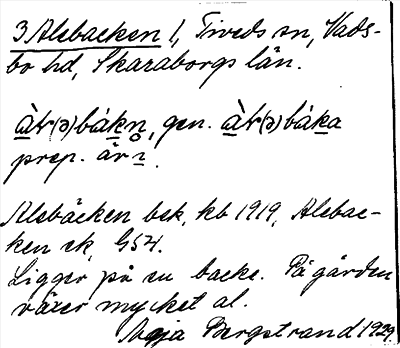 3 Alebacken 1, Tiveds sn, Vads-
bo hd, Skaraborgs län.
àɫ(ə)bákn̥, gen. àɫ(ə)báka
prep. är ı.
Alebäcken bsk, kb 1919, Alebac-
ken ek, G54.
Ligger på en backe. På gården
växer mycket al.
Maja Bergstrand 1929.